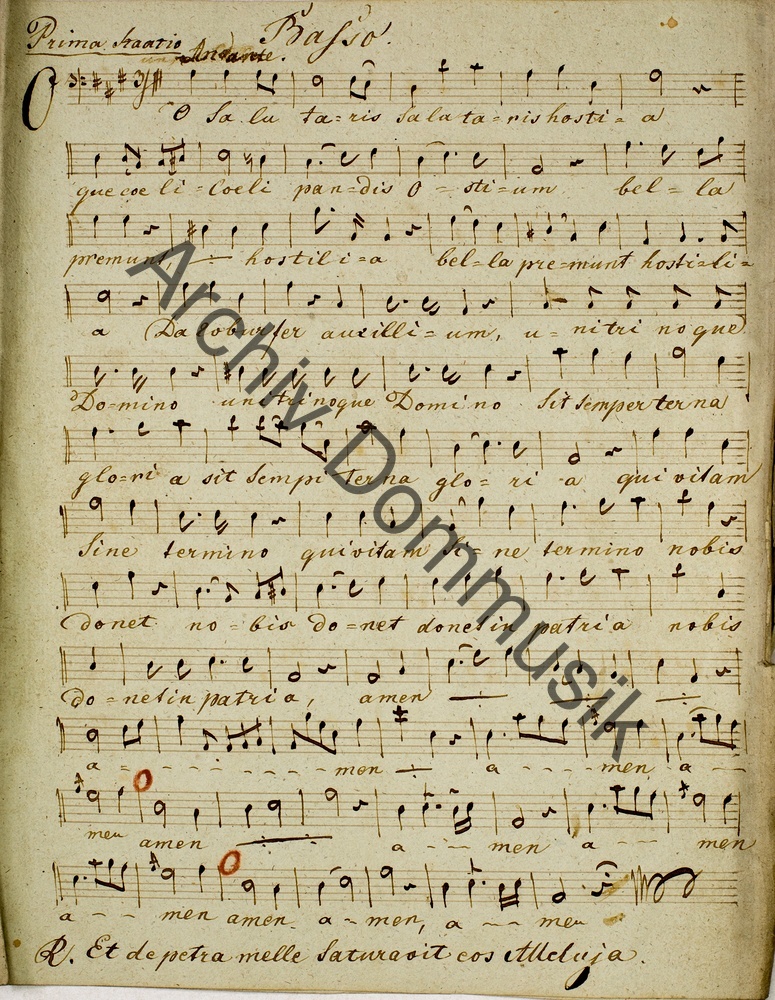 Prima Staatio Basso.
Andante.
O Sa lu ta=ris Saluta=ris hosti=a
que coe li=Coeli pan=dis O=sti=um bel=la
premunt hostili=a bel=la pre=munt hosti=li=
a Da robur fer auxilli=um, u=nitri noque
Do=mino unitrinoque Domino Sit Semper terna
glo=ri a sit Sempi terna glo=ri a qui vitam
Sine termino qui vitam Si=ne termino nobis
donet no=bis do=net donet in patria nobis
do=net in patria, amen
a - - - - - - - - men a - - - - men a - -
men amen a - - - men a - - - men
a - - men amen a=men, a - - men
R. Et de petra melle Saturavit eos Alleluja.
Archiv Dommusik